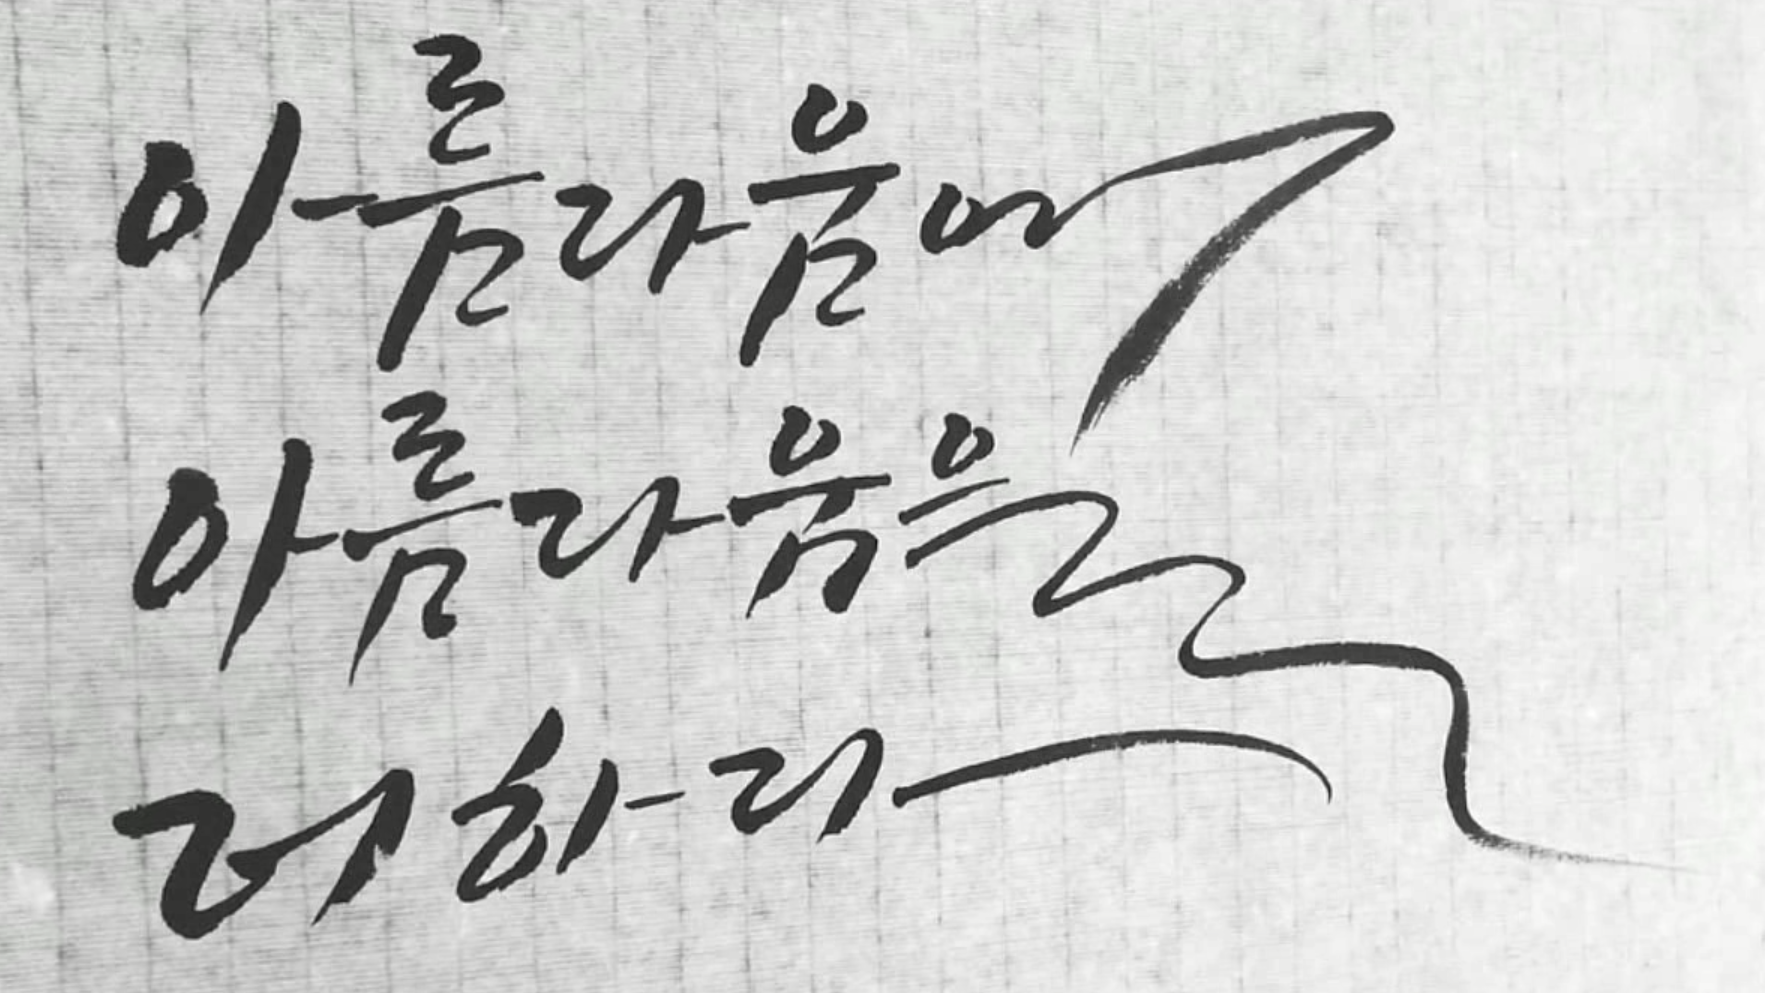 아름다움에
아름다움을
더하다